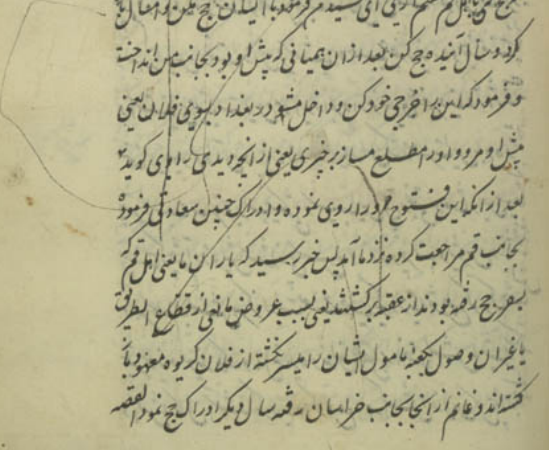 کرد و سال آینده حج کن بعد از آن همیانی که پیش او بود بجانب من انداخت
و فرمود که این را خرجی خود کن و داخل مشو در بغداد بسوی فلان یعنی
پیش او مرو و او را مطلع مساز بر چیزی یعنی از آنچه دیدی راوی کوید که
بعد از آنکه این فتوح او را روی نموده و ادراک چنین سعادتی فرموده
بجانب قم مراجعت کرده نزد ما آمد پس خبر رسید که یاران ما یعنی اهل قم که
بسفر حج رفته بودند از عقبه برکشتند یعنی بسبب عروض مانعی از قطاع الطریق
یا غیر آن وصول بکعبه مامول ایشان را میسر نکشته از فلان کریوه معهود باز
کشته‌اند و غانم از آنجا بجانب خراسان رفته سال دیکر ادراک حج نمود القصه